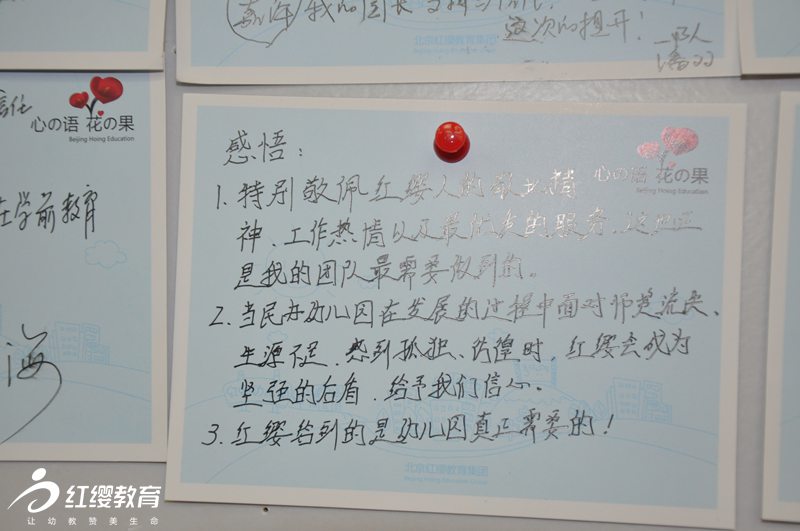 这次的提升！
北京红缨教育集团
信任
心の语 花の果
Beijing Hoing Education
学前教育
海
感悟：
心の语 花の果
Beijing Hoing Education
1. 特别敬佩红缨人的敬业精
神、工作热情以及最优质的服务、这也正
是我的团队最需要做到的。
2. 当民办幼儿园在发展的过程中面对师资流失、
生源不足，感到孤独、彷徨时，红缨会成为
坚强的后盾，给予我们信心。
3. 红缨给到的是幼儿园真正需要的！
北京红缨教育集团
Beijing Hoing Education Group
红缨教育
让幼教赞美生命